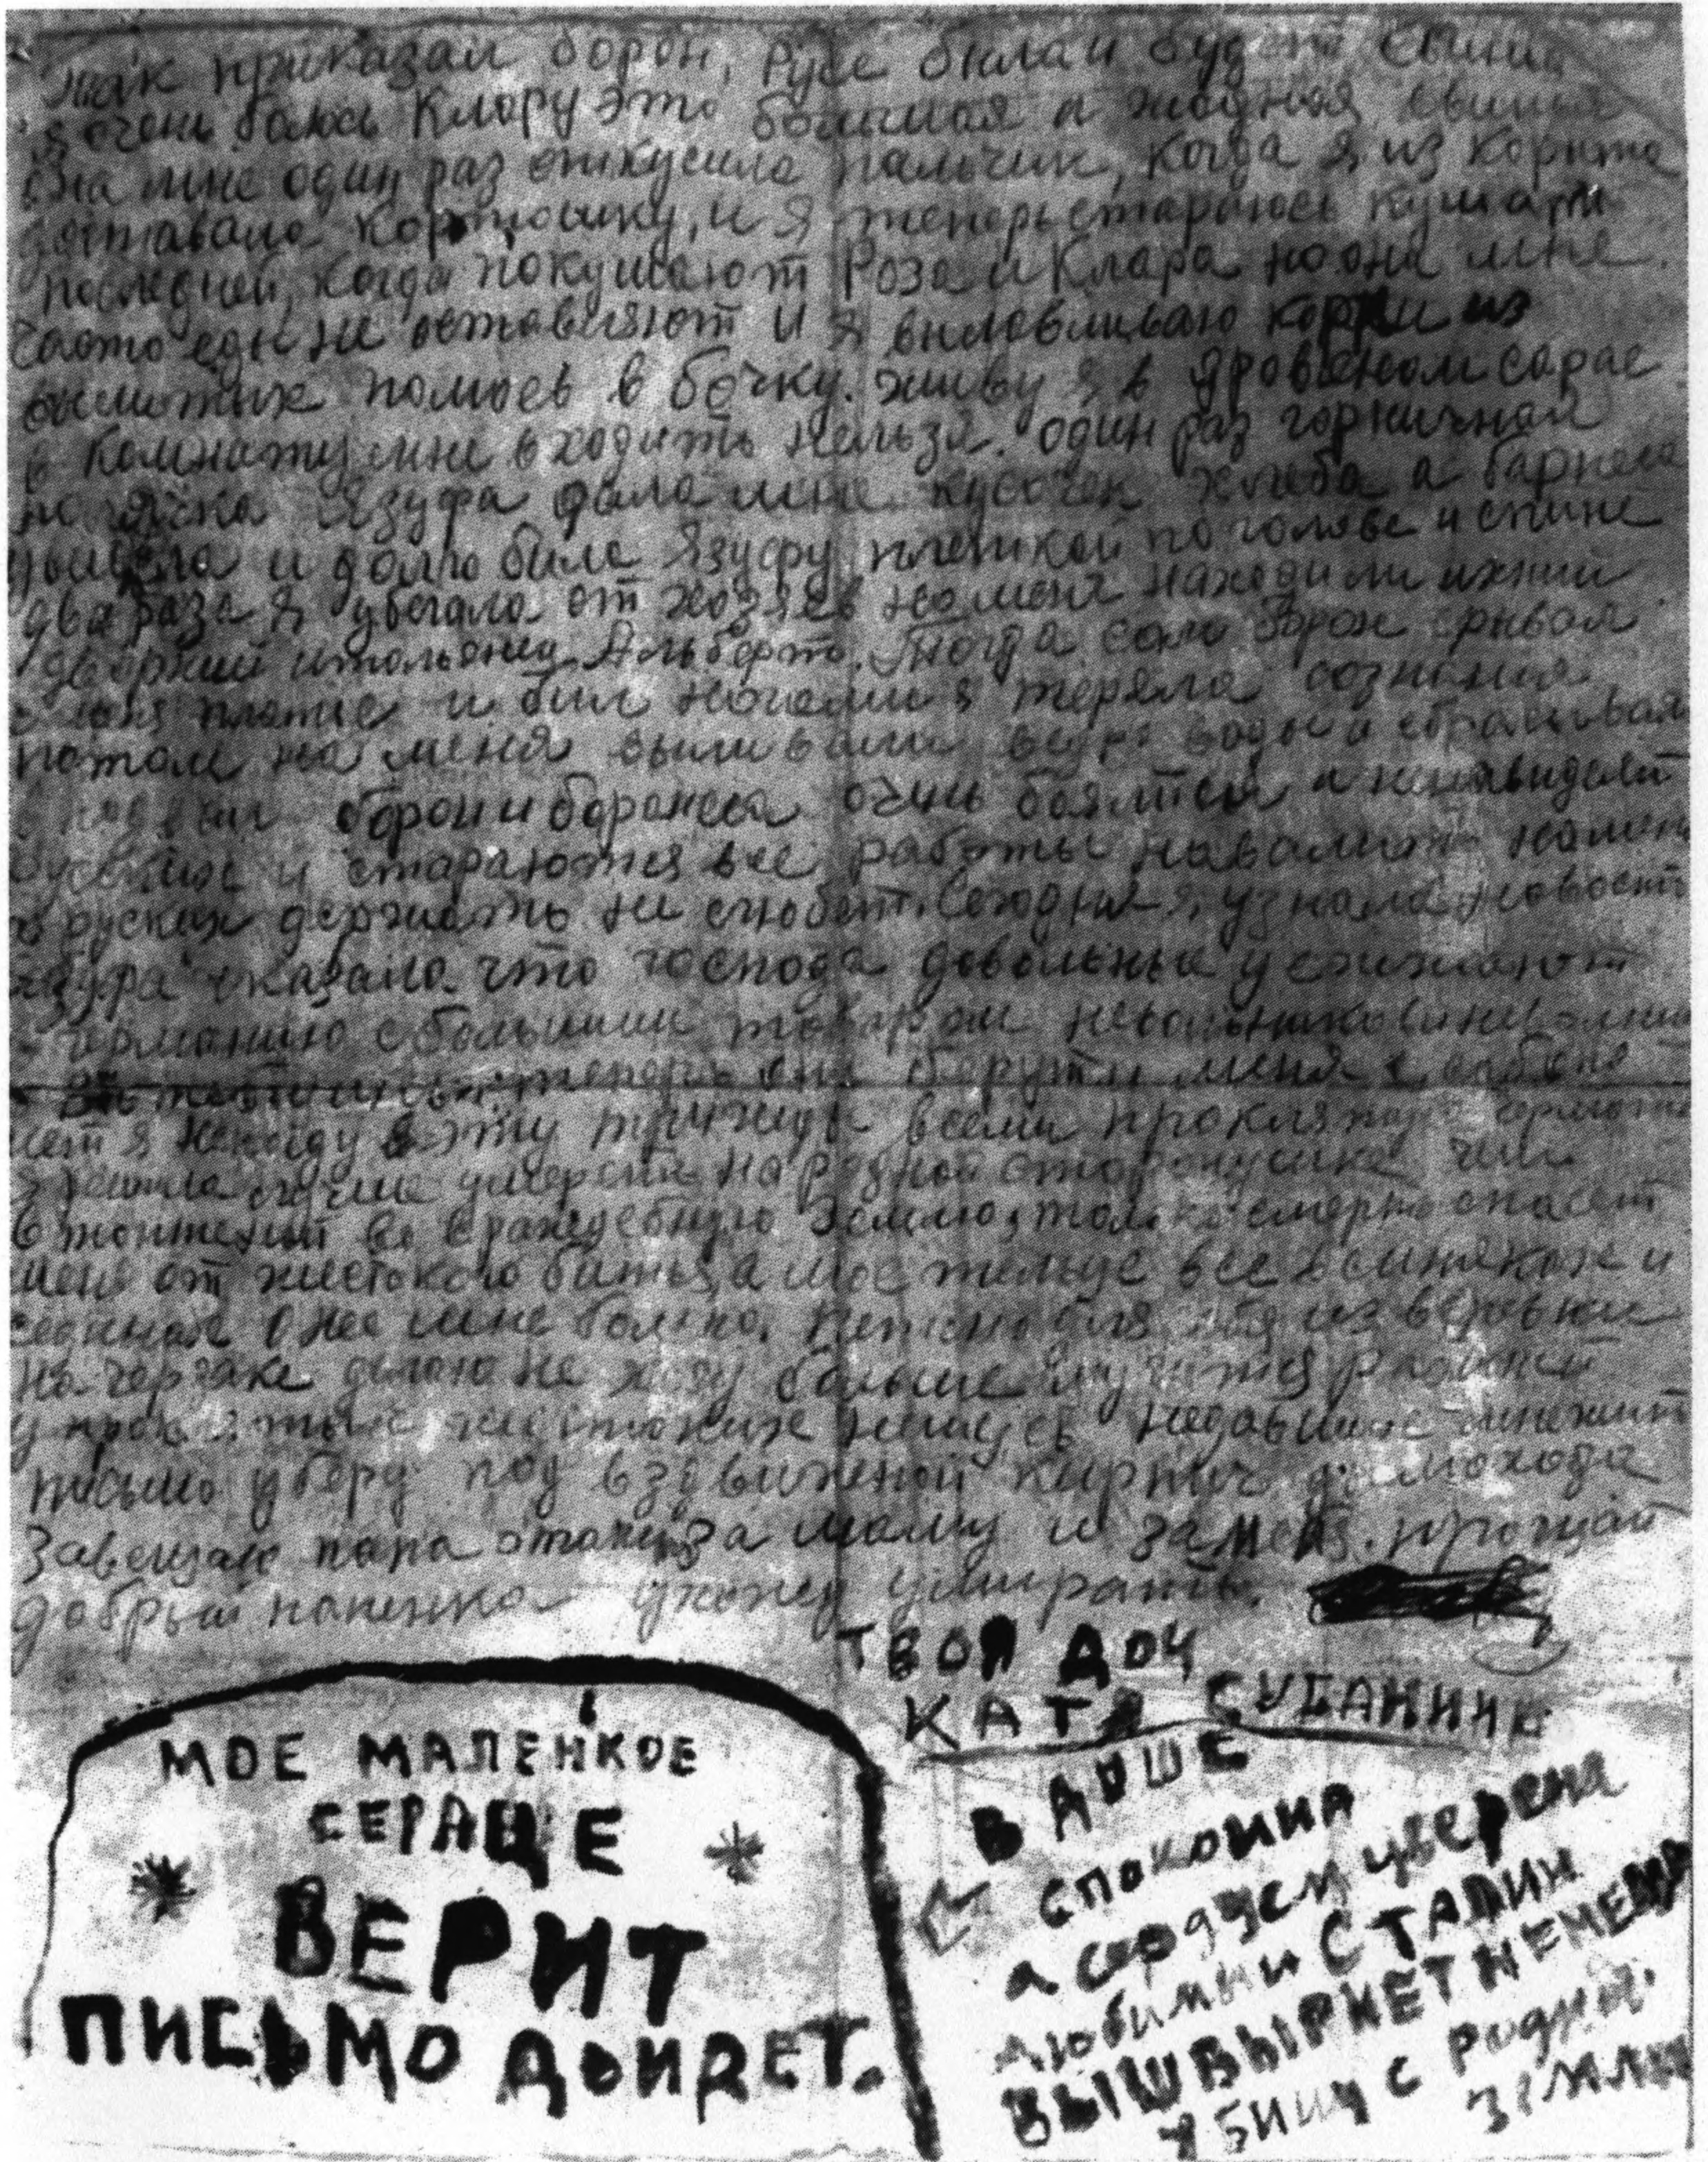 так приказал борон, Русе была и будет свиня
я очень боюсь Клару это большая и жадная свиня
она мне один раз откусила пальчик, когда я из корыта
доставала картошку, и я теперь стараюсь кушать
последней, когда покушают Роза и Клара но они мне
часто еды не оставляют и я вылавлицаю корки из
помоев в бочку. живу я в дровеном сарае
в комнату мне входить нельзя. один раз горничная
полячка Язуфа дала мне кусочек хлеба а
и долго била Язуфу плеткой по голове и спине
два раза я убегала от хозяев но меня находили ихний
дворний итольянец Альберто. Тогда сам борон срывал
с меня платие и бил ногами я теряла сознание
потом на меня выливали ведро воды и сбрасывали
борон и баронеса очень боятся и ненавидят
и стараются все работы навалить на меня
а руских держать не Сегодня я узнала новость
сказала что господа довольные уезжают
с большим невольников и невольниц
теперь они берут и меня с
нет я не поеду в эту всеми проклятую
я решила лучше умереть на родной сторонушке чем
во враждебную землю, только смерть спасет
меня от жестокого битья а мое тельце все в синяках и
мне больно. из веревки
на чердаке делаю не хочу больше мучится рабыней
у проклятых жестоких немцев недавших мне жить
письмо уберу под взд кирпич дымохода
Завещаю папа отомсти за маму и за меня. прощай
добрый папенка ухожу умирать.
ТВОЯ ДОЧ
КАТЯ СУСАНИНА
МОЕ МАЛЕНКОЕ
СЕРДЦЕ
ВЕРИТ
ПИСЬМО ДЫИДЕТ.
В ДУШЕ
СПОКОИНА
а сердцем уверена
любимыи СТАЛИН
ВЫШВЫРНЕТ
убииц с родной
земли